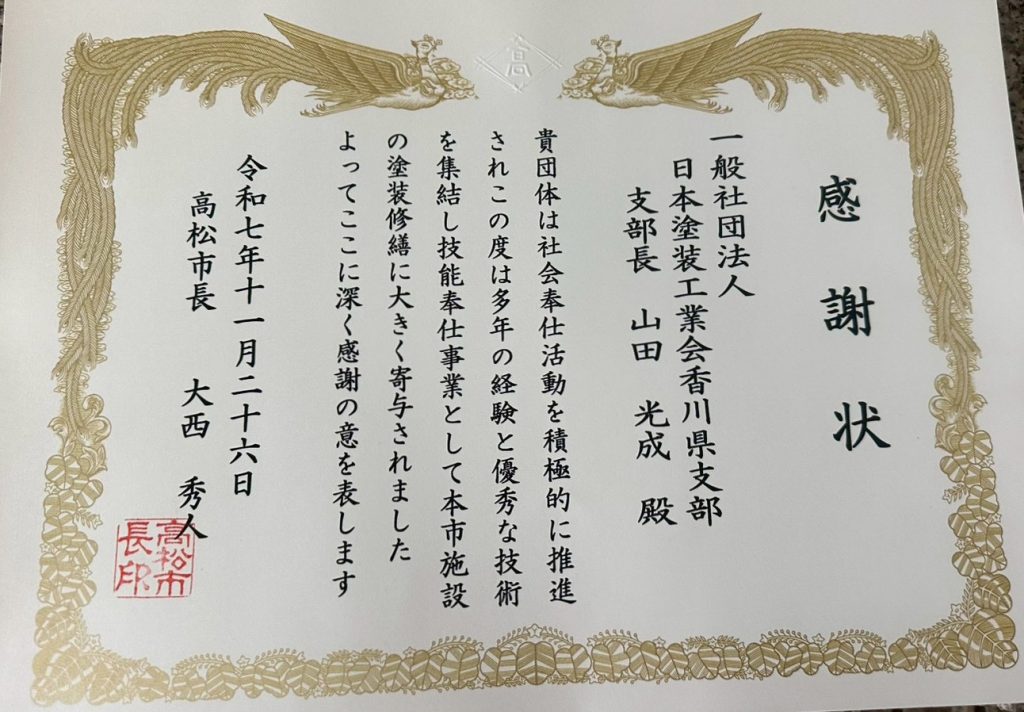 高
感謝状
一般社団法人
日本塗装工業会香川県支部
支部長 山田 光成 殿
貴団体は社会奉仕活動を積極的に推進
されこの度は多年の経験と優秀な技術
を集結し技能奉仕事業として本市施設
の塗装修繕に大きく寄与されました
よってここに深く感謝の意を表します
令和七年十一月二十六日
高松市長 大西 秀人
高松市
長印